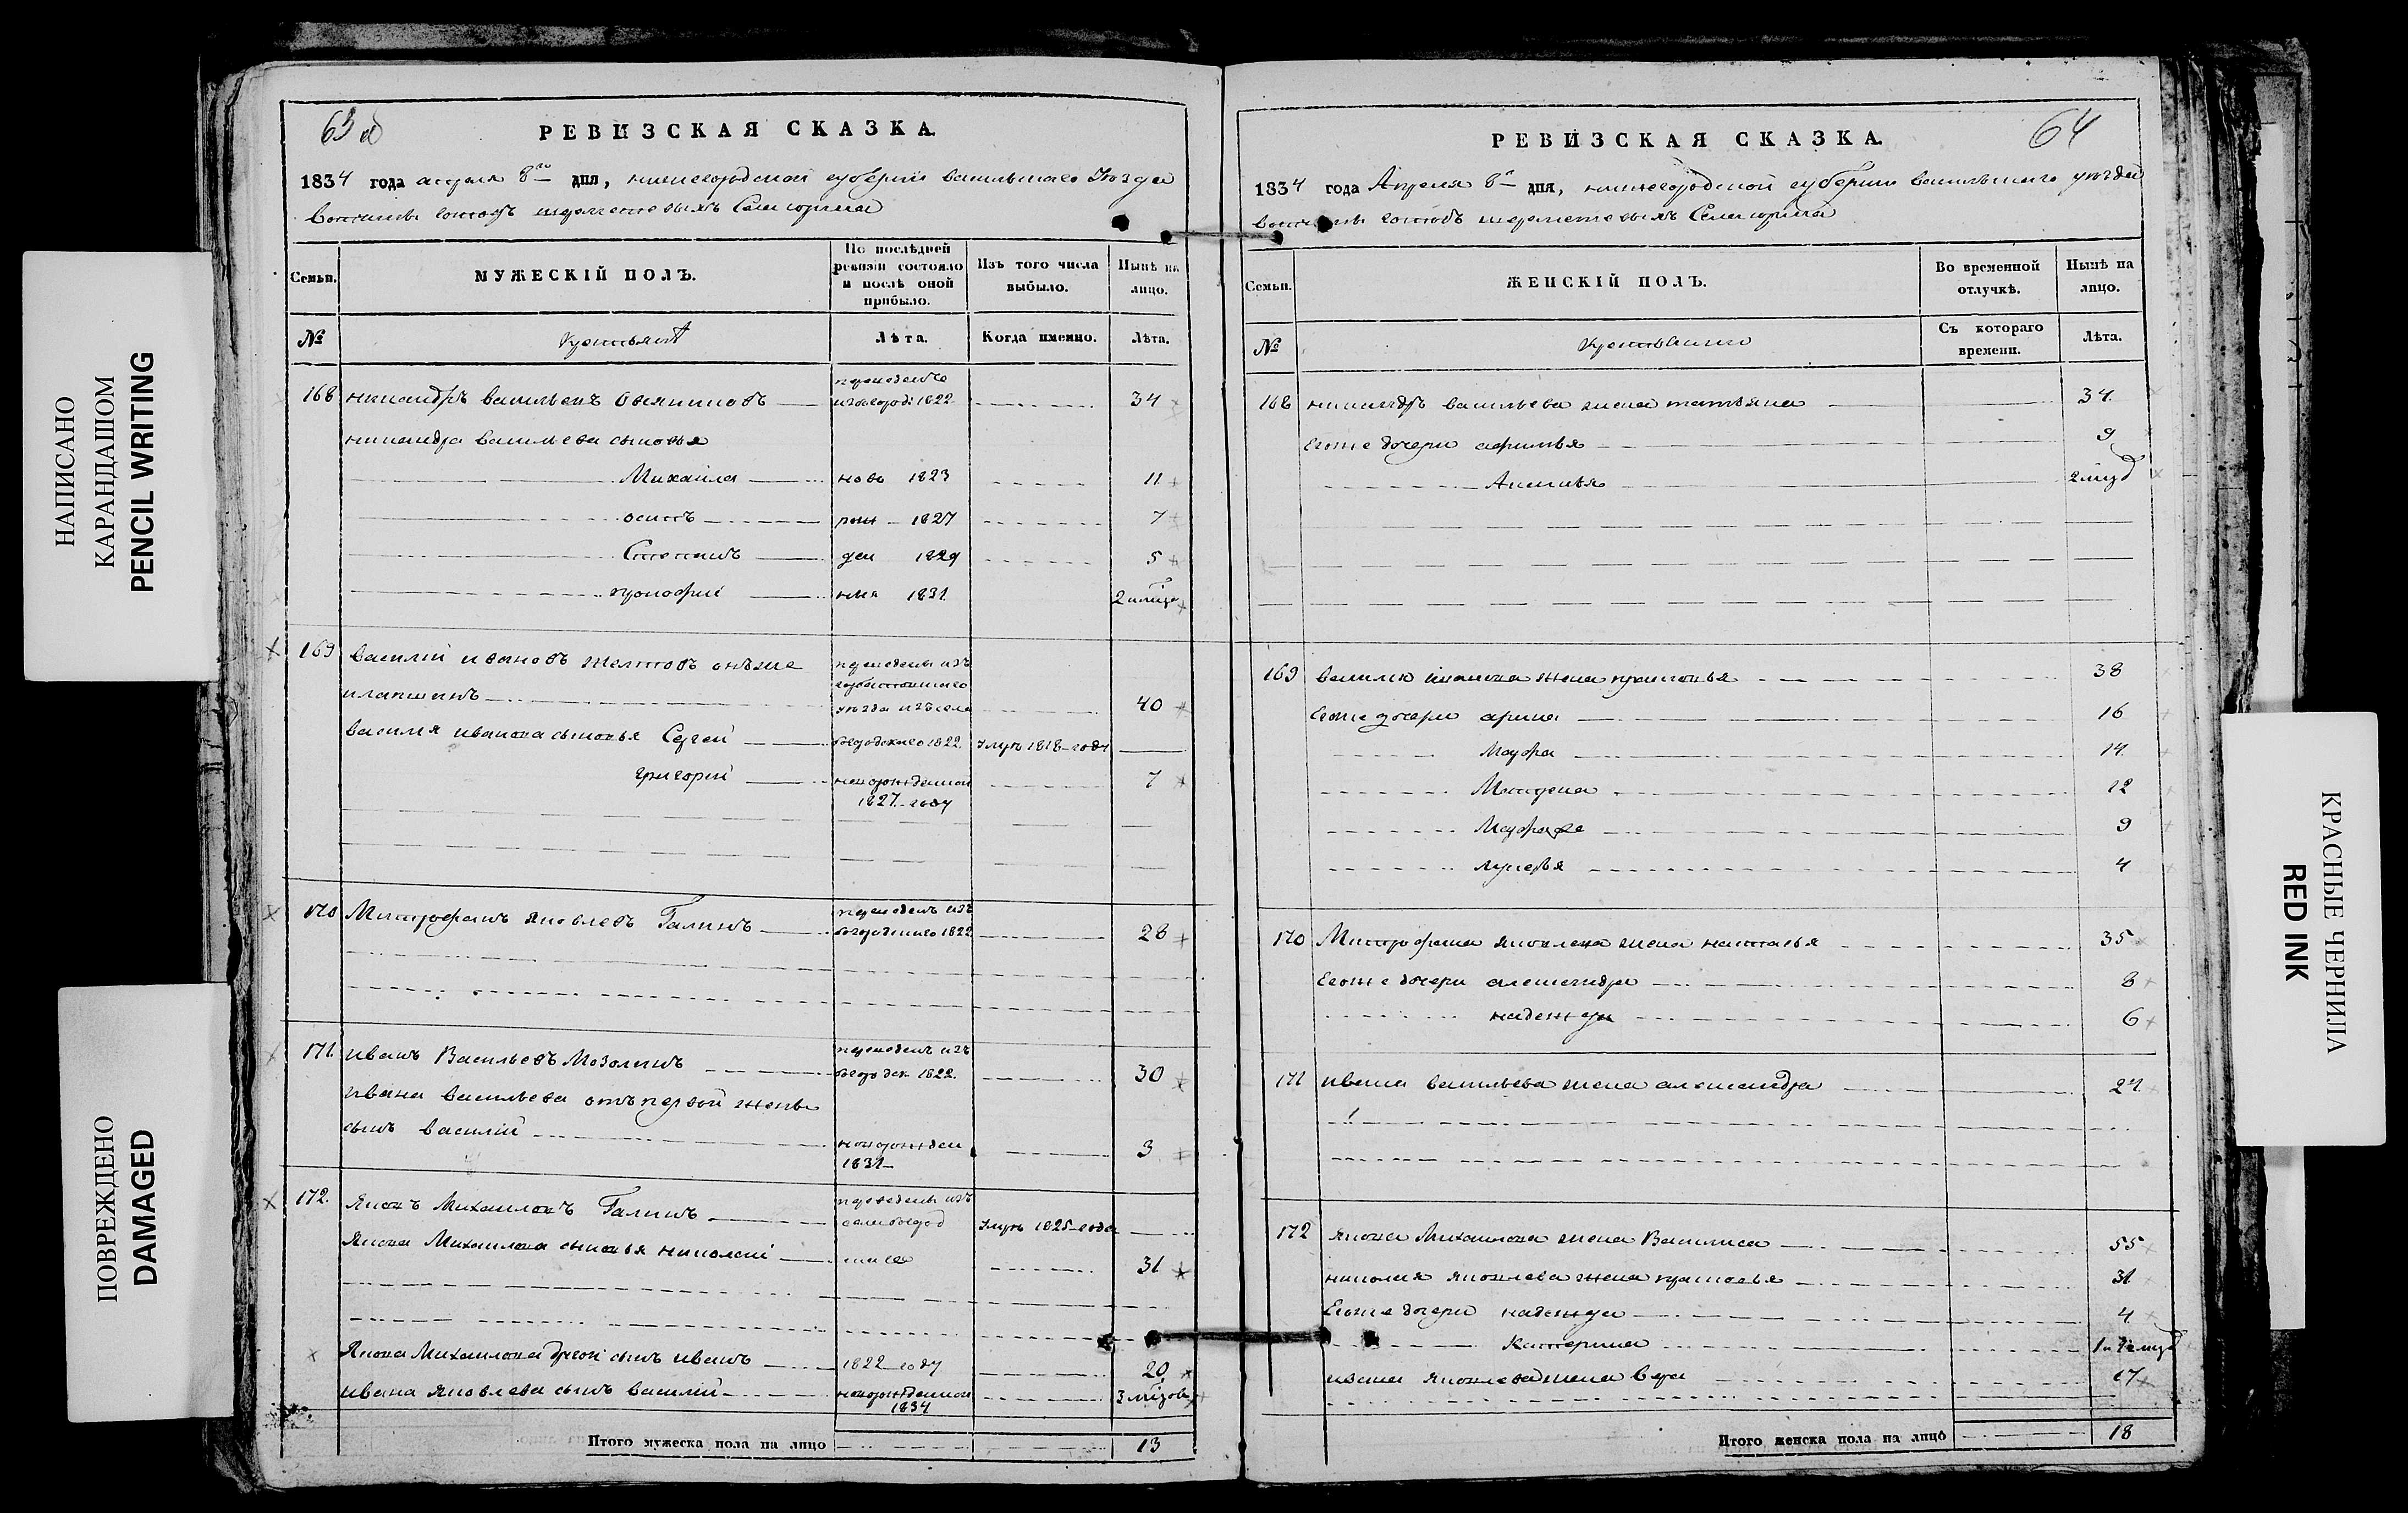 НАПИСАНО
КАРАНДАШОМ
PENCIL WRITING
ПОВРЕЖДЕНО
DAMAGED
63 об
РЕВИЗСКАЯ СКАЗКА.
1834 года апреля 8го дня, нижегородской губернии васильскаго уезда
вотчины господъ шереметевыхъ Села юрина
Семьи.
МУЖЕСКІЙ ПОЛЪ.
По послѣдней ревизіи состояло и послѣ оной прибыло.
Изъ того числа выбыло.
Нынѣ на лицо.
№
крестьянъ
Лѣта.
Когда именно.
Лѣта.
168 никандръ васильевъ 1822 34
никандра васильева сыновья
Михайла ново 1823 11
осипъ рож 1827 7
Степанъ ден 1829 5
прокофий 1831 2
169 василий ивановъ желтовъ онъже
переведены изъ
уезда изъ села 40
василья иванова сыновья Сергей 1822 умре 1818 году
григорий новорожденной 7
1827 году
170 Митрофанъ яковлевъ Галинъ переведенъ изъ
1822 28
171 иванъ Васильевъ Мозолинъ переведенъ изъ
1822. 30
ивана васильева отъ первой жены
сынъ василий новорожден 3
1831
172. яковъ Михайловъ Галинъ переведены изъ
умре 1825 года
якова Михайлова сыновья николай 31
якова Михайлова другой сынъ иванъ 1822 году 20
ивана яковлева сынъ василий новорожденной
1834
Итого мужеска пола на лицо 13
64
РЕВИЗСКАЯ СКАЗКА.
1834 года Апреля 8го дня, нижегородской губернии васильскаго уезда
вотчины господъ шереметевыхъ Села юрина
Семьи.
ЖЕНСКІЙ ПОЛЪ.
Во временной отлучкѣ.
Нынѣ на лицо.
№
Съ котораго времени.
Лѣта.
168 никандра васильева жена татьяна 34.
Егоже дочери афимья 9
Аксинья
169 василья иванова жена прасковья 38
Егоже дочери арина 16
Марфа 14
Матрена 12
Марфа 9
лукерья 4
170 Митрофана яковлева жена наталья 35
Егоже дочери александра 8
надежда 6
171 ивана васильева жена александра
172 якова Михайлова жена Василиса 55
николая яковлева жена прасковья 31
Егоже дочери надежда 4
Катерина
ивана яковлева жена вера 17
Итого женска пола на лицо 18
КРАСНЫЕ ЧЕРНИЛА
RED INK